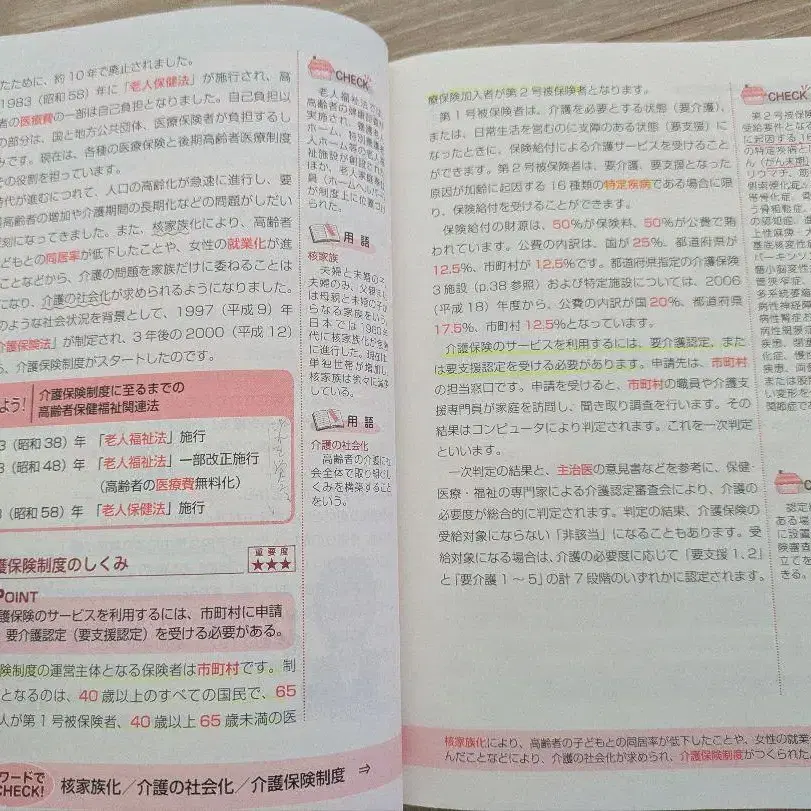 たために、約10年で廃止されました。
1983（昭和58）年に「老人保健法」が施行され、高
者の医療費の一部は自己負担となりました。自己負担以
の部分は、国と地方公共団体、医療保険者が負担するし
みです。現在は、各種の医療保険と後期高齢者医療制度
その役割を担っています。
時代が進むにつれて、人口の高齢化が急速に進行し、要
高齢者の増加や介護期間の長期化などの問題がしだい
刻になってきました。また、核家族化により、高齢者
どもとの同居率が低下したことや、女性の就業化が進
ことなどから、介護の問題を家族だけに委ねることは
になり、介護の社会化が求められるようになりました。
のような社会状況を背景として、1997（平成9）年
介護保険法」が制定され、3年後の2000（平成12）
ら、介護保険制度がスタートしたのです。
よう！
介護保険制度に至るまでの
高齢者保健福祉関連法
3（昭和38）年 「老人福祉法」施行
3（昭和48）年 「老人福祉法」一部改正施行
（高齢者の医療費無料化）
3（昭和58）年 「老人保健法」施行
護保険制度のしくみ
重要度
★★★
POINT
護保険のサービスを利用するには、市町村に申請
要介護認定（要支援認定）を受ける必要がある。
険制度の運営主体となる保険者は市町村です。制
となるのは、40歳以上のすべての国民で、65
人が第1号被保険者、40歳以上65歳未満の医
ワードで
CHECK!
核家族化／介護の社会化／介護保険制度 ⇒
CHECK
老人福祉法では、
高齢者の健康診査が
実施され、養護老人
ホーム、特別養護老
人ホーム等の老人福
祉施設が創設された
ほか、老人家庭奉仕
員（ホームヘルパー）
が制度上に位置づけ
られた。
用語
核家族
夫婦と未婚の子、
夫婦のみ、父親また
は母親と未婚の子か
らなる家族をいう。
日本では1960年
代に核家族化が急速
に進行した。現在は
単独世帯が増加し、
核家族は徐々に減少
している。
用語
介護の社会化
高齢者の介護に社
会全体で取り組むし
くみを構築すること
をいう。
療保険加入者が第2号被保険者となります。
第1号被保険者は、介護を必要とする状態（要介護）、
または、日常生活を営むのに支障のある状態（要支援）に
なったときに、保険給付による介護サービスを受けること
ができます。第2号被保険者は、要介護、要支援となった
原因が加齢に起因する16種類の特定疾病である場合に限
り、保険給付を受けることができます。
保険給付の財源は、50％が保険料、50％が公費で賄
われています。公費の内訳は、国が25％、都道府県が
12.5％、市町村が12.5％です。都道府県指定の介護保険
3施設（p.38参照）および特定施設については、2006
（平成18）年度から、公費の内訳が国20％、都道府県
17.5％、市町村12.5％となっています。
介護保険のサービスを利用するには、要介護認定、また
は要支援認定を受ける必要があります。申請先は、市町村
の担当窓口です。申請を受けると、市町村の職員や介護支
援専門員が家庭を訪問し、聞き取り調査を行います。その
結果はコンピュータにより判定されます。これを一次判定
といいます。
一次判定の結果と、主治医の意見書などを参考に、保健・
医療・福祉の専門家による介護認定審査会により、介護の
必要度が総合的に判定されます。判定の結果、介護保険の
受給対象にならない「非該当」になることもあります。受
給対象になる場合は、介護の必要度に応じて「要支援1、2」
と「要介護1～5」の計7段階のいずれかに認定されます。
核家族化により、高齢者の子どもとの同居率が低下したことや、女性の就業
んだことなどにより、介護の社会化が求められ、介護保険制度がつくられた。
CHECK
第2号被保険
受給要件とな
に起因する16
の特定疾病と
ん（がん末期
リウマチ、筋
側索硬化症、
帯骨化症、骨
う骨粗鬆症、
の認知症、
上性麻痺・大
基底核変性
パーキンソン
髄小脳変性
管狭窄症、
多系統萎縮
病性神経障
病性腎症お
病性網膜
疾患、閉塞
化症、慢
疾患、両
または股
著しい変形
関節症で
CHECK
認定に
ある場
に設置
険審査
立てを
きる。